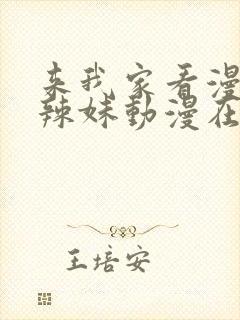 来我家看漫
辣妹動漫在
王培安